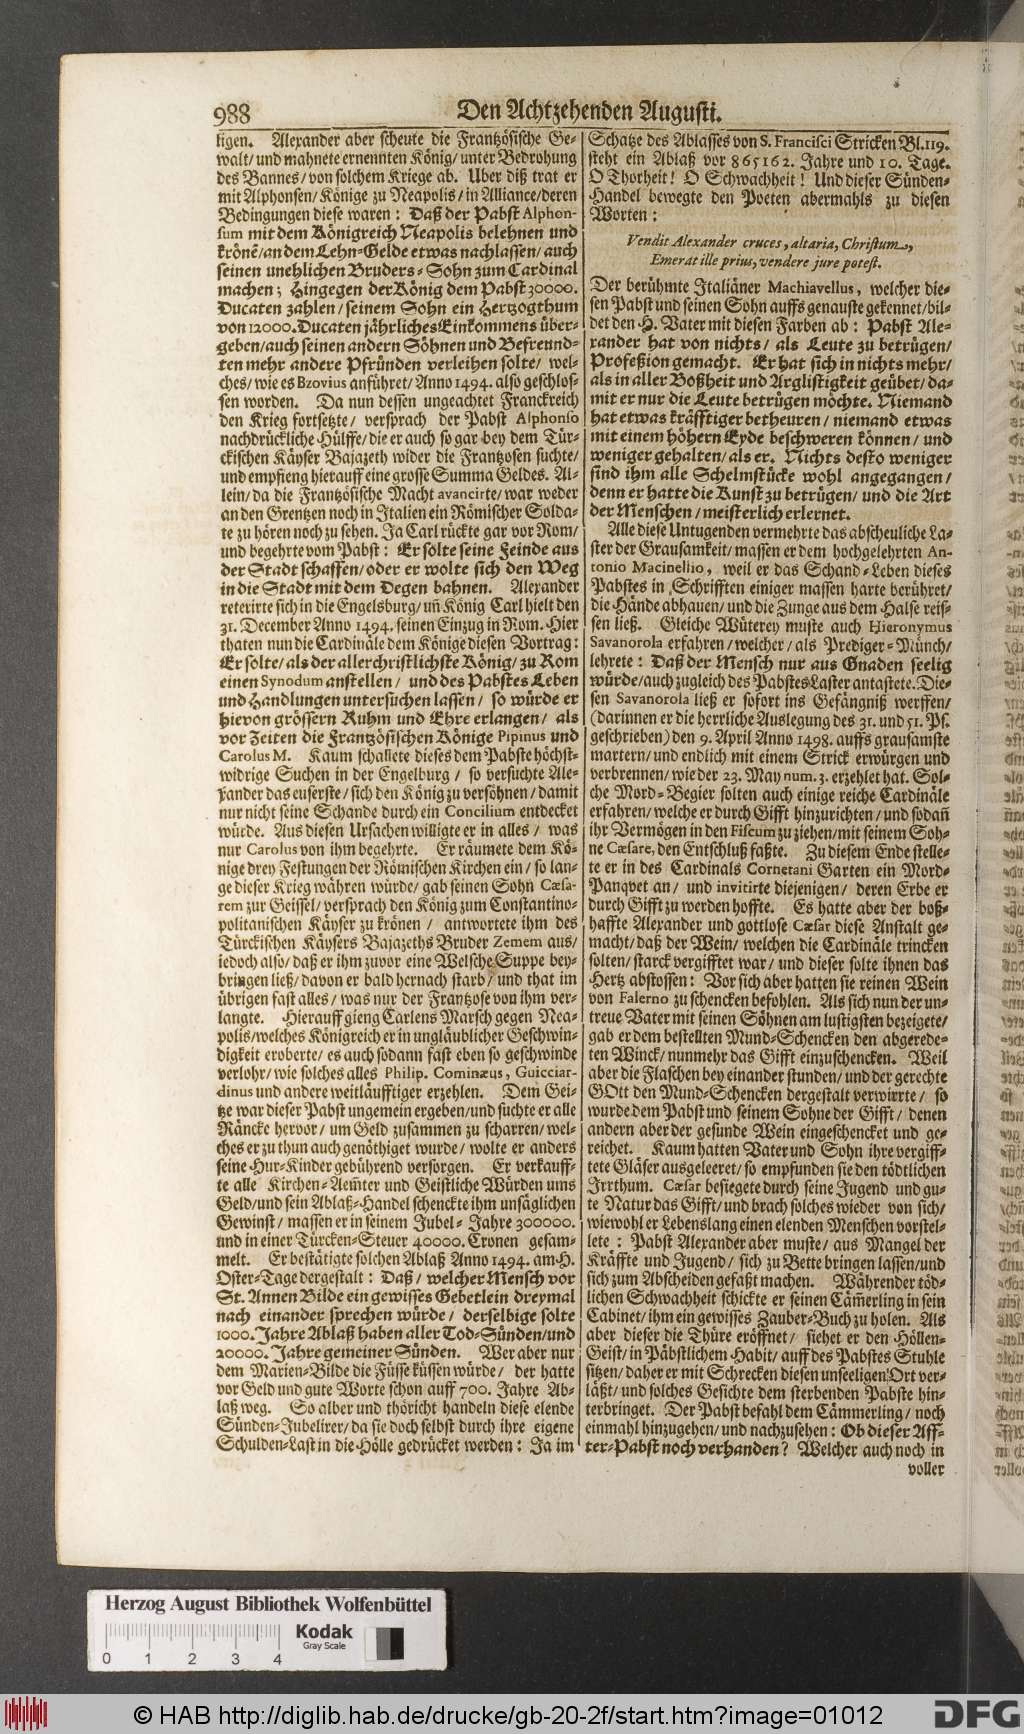 988
Den Achtzehenden Augusti.
ligen. Alexander aber scheute die Frantzösische Ge-
walt/ und mahnete ernennten König/ unter Bedrohung
des Bannes/ von solchem Kriege ab. Uber diß trat er
mit Alphonsen/ Könige zu Neapolis/ in Alliance/ deren
Bedingungen diese waren: Daß der Pabst Alphon-
sum mit dem Königreich Neapolis belehnen und
krönē/ an dem Lehn-Gelde etwas nachlassen/ auch
seinen unehlichen Bruders-Sohn zum Cardinal
machen; Hingegen der König dem Pabst 30000.
Ducaten zahlen/ seinem Sohn ein Hertzogthum
von 12000. Ducaten jährliches Einkommens über-
geben/ auch seinen andern Söhnen und Befreund-
ten mehr andere Pfründen verleihen solte/ wel-
ches/ wie es Bzovius anführet/ Anno 1494. also geschlos-
sen worden. Da nun dessen ungeachtet Franckreich
den Krieg fortsetzte/ versprach der Pabst Alphonso
nachdrückliche Hülffe/ die er auch so gar bey dem Tür-
ckischen Käyser Bajazeth wider die Frantzosen suchte/
und empfieng hierauff eine grosse Summa Geldes. Al-
lein/ da die Frantzösische Macht avancirte/ war weder
an den Grentzen noch in Italien ein Römischer Solda-
te zu hören noch zu sehen. Ja Carl rückte gar vor Rom/
und begehrte vom Pabst: Er solte seine Feinde aus
der Stadt schaffen/ oder er wolte sich den Weg
in die Stadt mit dem Degen bahnen. Alexander
reterirte sich in die Engelsburg/ uñ König Carl hielt den
31. December Anno 1494. seinen Einzug in Rom. Hier
thaten nun die Cardinäle dem Könige diesen Vortrag:
Er solte/ als der allerchristlichste König/ zu Rom
einen Synodum anstellen/ und des Pabstes Leben
und Handlungen untersuchen lassen/ so würde er
hievon grössern Ruhm und Ehre erlangen/ als
vor Zeiten die Frantzösischen Könige Pipinus und
Carolus M. Kaum schallete dieses dem Pabste höchst-
widrige Suchen in der Engelburg/ so versuchte Ale-
xander das euserste/ sich den König zu versöhnen/ damit
nur nicht seine Schande durch ein Concilium entdecket
würde. Aus diesen Ursachen willigte er in alles/ was
nur Carolus von ihm begehrte. Er räumete dem Kö-
nige drey Festungen der Römischen Kirchen ein/ so lan-
ge dieser Krieg währen würde/ gab seinen Sohn Cæsa-
rem zur Geissel/ versprach den König zum Constantino-
politanischen Käyser zu krönen/ antwortete ihm des
Türckischen Käysers Bajazeths Bruder Zemem aus/
iedoch also/ daß er ihm zuvor eine Welsche Suppe bey-
bringen ließ/ davon er bald hernach starb/ und that im
übrigen fast alles/ was nur der Frantzose von ihm ver-
langte. Hierauff gieng Carlens Marsch gegen Nea-
polis/ welches Königreich er in ungläublicher Geschwin-
digkeit eroberte/ es auch sodann fast eben so geschwinde
verlohr/ wie solches alles Philip. Cominæus, Guicciar-
dinus und andere weitläufftiger erzehlen. Dem Gei-
tze war dieser Pabst ungemein ergeben/ und suchte er alle
Räncke hervor/ um Geld zusammen zu scharren/ wel-
ches er zu thun auch genöthiget wurde/ wolte er anders
seine Hur-Kinder gebührend versorgen. Er verkauff-
te alle Kirchen-Aem̄ter und Geistliche Würden ums
Geld/ und sein Ablaß-Handel schenckte ihm unsäglichen
Gewinst/ massen er in seinem Jubel-Jahre 300000.
und in einer Türcken-Steuer 40000. Cronen gesam-
melt. Er bestätigte solchen Ablaß Anno 1494. am H.
Oster-Tage dergestalt: Daß/ welcher Mensch vor
St. Annen Bilde ein gewisses Gebetlein dreymal
nach einander sprechen würde/ derselbige solte
1000. Jahre Ablaß haben aller Tod-Sünden/ und
20000. Jahre gemeiner Sünden. Wer aber nur
dem Marien-Bilde die Füsse küssen würde/ der hatte
vor Geld und gute Worte schon auff 700. Jahre Ab-
laß weg. So alber und thöricht handeln diese elende
Sünden-Jubelirer/ da sie doch selbst durch ihre eigene
Schulden-Last in die Hölle gedrücket werden: Ja im
Schatze des Ablasses von S. Francisci Stricken Bl. 119.
steht ein Ablaß vor 865162. Jahre und 10. Tage.
O Thorheit! O Schwachheit! Und dieser Sünden-
Handel bewegte den Poeten abermahls zu diesen
Worten:
Vendit Alexander cruces, altaria, Christum,
Emerat ille prius, vendere jure potest.
Der berühmte Italiäner Machiavellus, welcher die-
sen Pabst und seinen Sohn auffs genauste gekennet/ bil-
det den H. Vater mit diesen Farben ab: Pabst Ale-
xander hat von nichts/ als Leute zu betrügen/
Profeßion gemacht. Er hat sich in nichts mehr/
als in aller Boßheit und Arglistigkeit geübet/ da-
mit er nur die Leute betrügen möchte. Niemand
hat etwas kräfftiger betheuren/ niemand etwas
mit einem höhern Eyde beschweren können/ und
weniger gehalten/ als er. Nichts desto weniger
sind ihm alle Schelmstücke wohl angegangen/
denn er hatte die Kunst zu betrügen/ und die Art
der Menschen/ meisterlich erlernet.
Alle diese Untugenden vermehrte das abscheuliche La-
ster der Grausamkeit/ massen er dem hochgelehrten An-
tonio Macinellio, weil er das Schand-Leben dieses
Pabstes in Schrifften einiger massen harte berühret/
die Hände abhauen/ und die Zunge aus dem Halse reis-
sen ließ. Gleiche Wüterey muste auch Hieronymus
Savanorola erfahren/ welcher/ als Prediger-Münch/
lehrete: Daß der Mensch nur aus Gnaden seelig
würde/ auch zugleich des Pabstes Laster antastete. Die-
sen Savanorola ließ er sofort ins Gefängniß werffen/
(darinnen er die herrliche Auslegung des 31. und 51. Ps.
geschrieben) den 9. April Anno 1498. auffs grausamste
martern/ und endlich mit einem Strick erwürgen und
verbrennen/ wie der 23. May num. 3. erzehlet hat. Sol-
che Mord-Begier solten auch einige reiche Cardinäle
erfahren/ welche er durch Gifft hinzurichten/ und sodañ
ihr Vermögen in den Fiscum zu ziehen/ mit seinem Soh-
ne Cæsare, den Entschluß faßte. Zu diesem Ende stelle-
te er in des Cardinals Cornetani Garten ein Mord-
Panqvet an/ und invitirte diejenigen/ deren Erbe er
durch Gifft zu werden hoffte. Es hatte aber der boß-
haffte Alexander und gottlose Cæsar diese Anstalt ge-
macht/ daß der Wein/ welchen die Cardinäle trincken
solten/ starck vergifftet war/ und dieser solte ihnen das
Hertz abstossen: Vor sich aber hatten sie reinen Wein
von Falerno zu schencken befohlen. Als sich nun der un-
treue Vater mit seinen Söhnen am lustigsten bezeigete/
gab er dem bestellten Mund-Schencken den abgerede-
ten Winck/ nunmehr das Gifft einzuschencken. Weil
aber die Flaschen bey einander stunden/ und der gerechte
GOtt den Mund-Schencken dergestalt verwirrte/ so
wurde dem Pabst und seinem Sohne der Gifft/ denen
andern aber der gesunde Wein eingeschencket und ge-
reichet. Kaum hatten Vater und Sohn ihre vergiff-
tete Gläser ausgeleeret/ so empfunden sie den tödtlichen
Irrthum. Cæsar besiegete durch seine Jugend und gu-
te Natur das Gifft/ und brach solches wieder von sich/
wiewohl er Lebenslang einen elenden Menschen vorstel-
lete: Pabst Alexander aber muste/ aus Mangel der
Kräffte und Jugend/ sich zu Bette bringen lassen/ und
sich zum Abscheiden gefaßt machen. Währender töd-
lichen Schwachheit schickte er seinen Cäm̄erling in sein
Cabinet/ ihm ein gewisses Zauber-Buch zu holen. Als
aber dieser die Thüre eröffnet/ siehet er den Höllen-
Geist/ in Päbstlichem Habit/ auff des Pabstes Stuhle
sitzen/ daher er mit Schrecken diesen unseeligen Ort ver-
läßt/ und solches Gesichte dem sterbenden Pabste hin-
terbringet. Der Pabst befahl dem Cämmerling/ noch
einmahl hinzugehen/ und nachzusehen: Ob dieser Aff-
ter-Pabst noch verhanden? Welcher auch noch in
voller
Herzog August Bibliothek Wolfenbüttel
Kodak
Gray Scale
0 1 2 3 4
© HAB http://diglib.hab.de/drucke/gb-20-2f/start.htm?image=01012
DFG